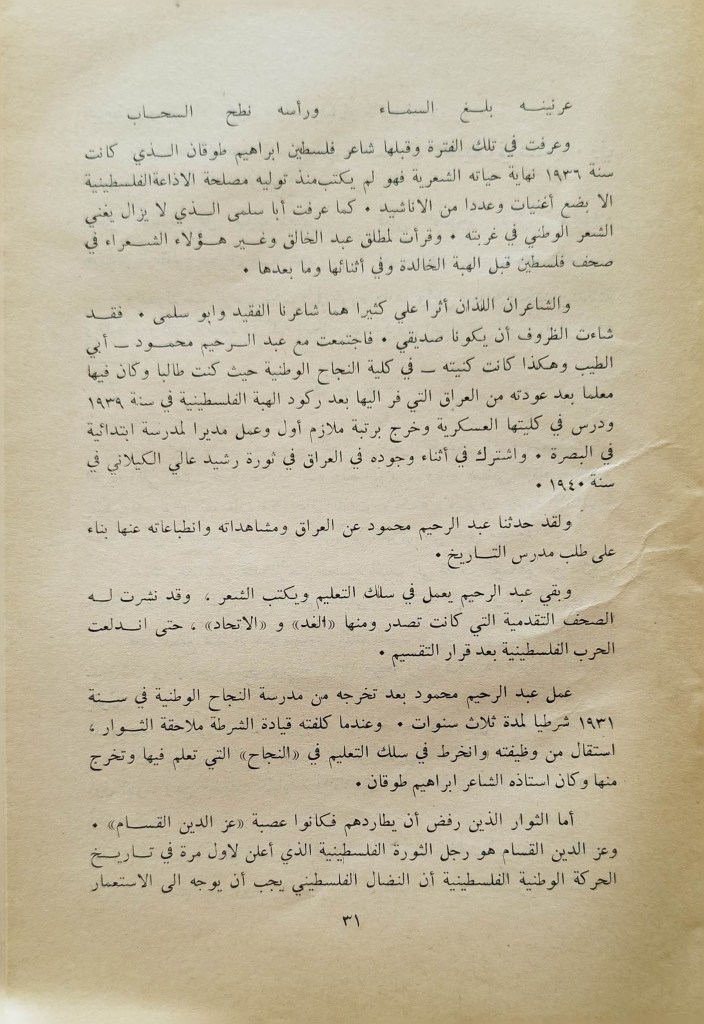 عرنينه بلغ السماء ورأسه نطح السحاب
وعرفت في تلك الفترة وقبلها شاعر فلسطين ابراهيم طوقان الذي كانت
سنة ١٩٣٦ نهاية حياته الشعرية فهو لم يكتب منذ توليه مصلحة الاذاعة الفلسطينية
الا بضع أغنيات وعددا من الاناشيد • كما عرفت أبا سلمى الذي لا يزال يغني
الشعر الوطني في غربته • وقرأت لمطلق عبد الخالق وغير هؤلاء الشعراء في
صحف فلسطين قبل الهبة الخالدة وفي أثنائها وما بعدها •
والشاعران اللذان أثرا علي كثيرا هما شاعرنا الفقيد وابو سلمى • فقد
شاءت الظروف أن يكونا صديقي • فاجتمعت مع عبد الرحيم محمود ــ أبي
الطيب وهكذا كانت كنيته ــ في كلية النجاح الوطنية حيث كنت طالبا وكان فيها
معلما بعد عودته من العراق التي فر اليها بعد ركود الهبة الفلسطينية في سنة ١٩٣٩
ودرس في كليتها العسكرية وخرج برتبة ملازم أول وعمل مديرا لمدرسة ابتدائية
في البصرة • واشترك في أثناء وجوده في العراق في ثورة رشيد عالي الكيلاني في
سنة ١٩٤٠ •
ولقد حدثنا عبد الرحيم محمود عن العراق ومشاهداته وانطباعاته عنها بناء
على طلب مدرس التاريخ •
وبقي عبد الرحيم يعمل في سلك التعليم ويكتب الشعر ، وقد نشرت له
الصحف التقدمية التي كانت تصدر ومنها «الغد» و «الاتحاد» ، حتى اندلعت
الحرب الفلسطينية بعد قرار التقسيم •
عمل عبد الرحيم محمود بعد تخرجه من مدرسة النجاح الوطنية في سنة
١٩٣١ شرطيا لمدة ثلاث سنوات • وعندما كلفته قيادة الشرطة ملاحقة الثوار ،
استقال من وظيفته وانخرط في سلك التعليم في «النجاح» التي تعلم فيها وتخرج
منها وكان استاذه الشاعر ابراهيم طوقان •
أما الثوار الذين رفض أن يطاردهم فكانوا عصبة «عز الدين القسام» •
وعز الدين القسام هو رجل الثورة الفلسطينية الذي أعلن لاول مرة في تاريخ
الحركة الوطنية الفلسطينية أن النضال الفلسطيني يجب أن يوجه الى الاستعمار
٣١